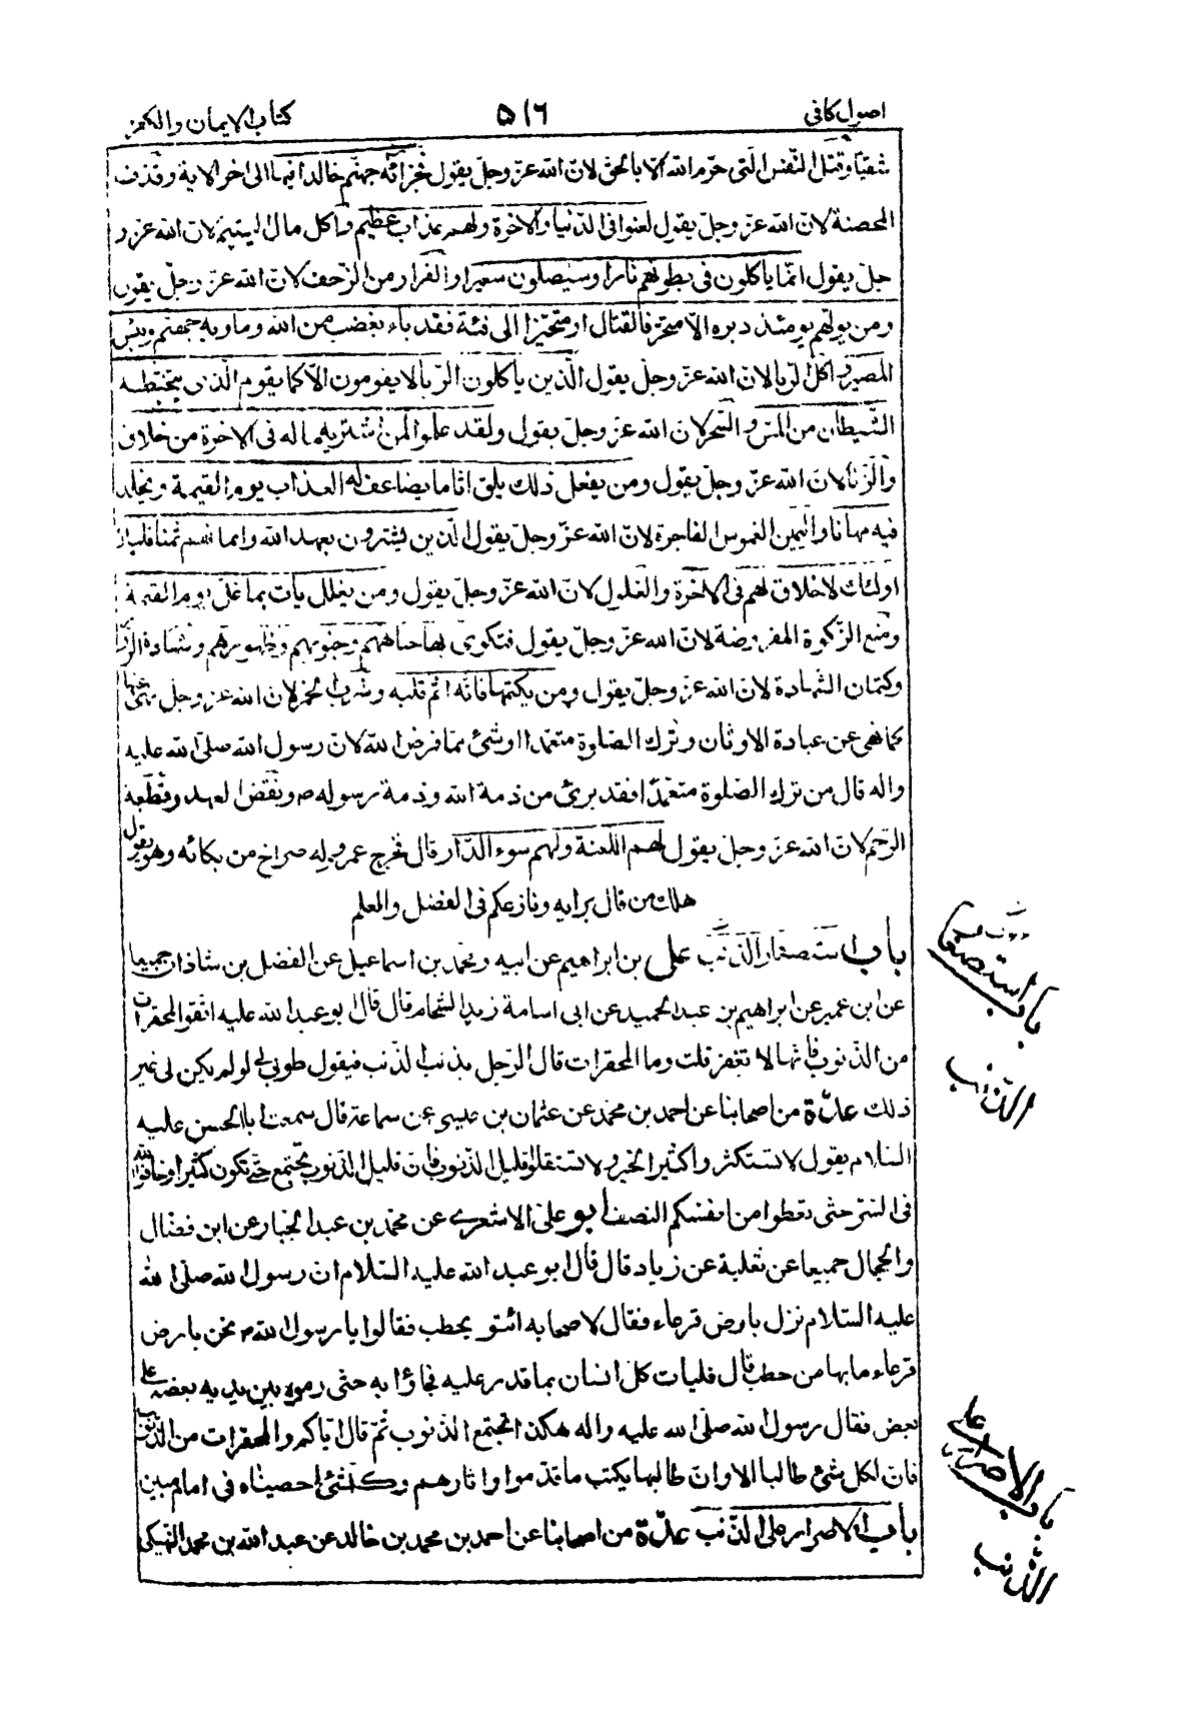 اصول كافى
٥١٦
كتاب الايمان والكفر
شقيا وقتل النفس التى حرم الله الا بالحق لان الله عز وجل يقول فجزائه جهنم خالدا فيها الى اخر الاية وقذف
المحصنة لان الله عز وجل يقول لعنوا فى الدنيا والاخرة ولهم عذاب عظيم واكل مال اليتيم لان الله عز و
جل يقول انما ياكلون فى بطونهم نارا وسيصلون سعيرا والفرار من الزحف لان الله عز وجل يقول
ومن يولهم يومئذ دبره الا متحرفا لقتال او متحيزا الى فئة فقد باء بغضب من الله وماويه جهنم وبئس
المصير واكل الربا لان الله عز وجل يقول الذين ياكلون الربا لا يقومون الا كما يقوم الذى يتخبطه
الشيطان من المس والسحر لان الله عز وجل يقول ولقد علموا لمن اشتريه ما له فى الاخرة من خلاق
والزنا لان الله عز وجل يقول ومن يفعل ذلك يلق اثاما يضاعف له العذاب يوم القيمة ويخلد
فيه مهانا واليمين الغموس الفاجرة لان الله عز وجل يقول الذين يشترون بعهد الله وايمانهم ثمنا قليلا
اولئك لاخلاق لهم فى الاخرة والغلول لان الله عز وجل يقول ومن يغلل يات بما غل يوم القيمة
ومنع الزكوة المفروضة لان الله عز وجل يقول فتكوى بها جباههم وجنوبهم وظهورهم وشهادة الزور
وكتمان الشهادة لان الله عز وجل يقول ومن يكتمها فانه اثم قلبه وشرب الخمر لان الله عز وجل نهى عنها
كما نهى عن عبادة الاوثان وترك الصلوة متعمدا او شئ مما فرض الله لان رسول الله صلى الله عليه
واله قال من ترك الصلوة متعمدا فقد برئ من ذمة الله وذمة رسوله ص ونقض العهد وقطيعة
الرحم لان الله عز وجل يقول لهم اللعنة ولهم سوء الدار قال فخرج عمرو وله صراخ من بكائه وهو يقول
هلك من قال برايه ونازعكم فى الفضل والعلم
باب استصغار الذنب على بن ابراهيم عن ابيه ومحمد بن اسماعيل عن الفضل بن شاذان جميعا
عن ابن عمير عن ابراهيم بن عبد الحميد عن ابى اسامة زيد الشحام قال قال ابو عبد الله عليه اتقوا المحقرات
من الذنوب فانها لا تغفر قلت وما المحقرات قال الرجل يذنب الذنب فيقول طوبى لى لو لم يكن لى غير
ذلك عدة من اصحابنا عن احمد بن محمد عن عثمان بن عيسى عن سماعة قال سمعت ابا الحسن عليه
السلام يقول لا تستكثروا كثير الخير ولا تستقلوا قليل الذنوب فان قليل الذنوب يجتمع حتى تكون كثيرا وخافوا الله
فى السر حتى تعطوا من انفسكم النصف ابو على الاشعرى عن محمد بن عبد الجبار عن ابن فضال
والحجال جميعا عن ثعلبة عن زياد قال قال ابو عبد الله عليه السلام ان رسول الله صلى الله
عليه السلام نزل بارض قرعاء فقال لاصحابه ائتو بحطب فقالوا يا رسول الله ص نحن بارض
قرعاء ما بها من حطب قال فليات كل انسان بما قدر عليه فجاؤا به حتى رموا بين يديه بعضه على
بعض فقال رسول الله صلى الله عليه واله هكذا تجتمع الذنوب ثم قال اياكم والمحقرات من الذنوب
فان لكل شئ طالبا الا وان طالبها يكتب ما قدموا واثارهم وكل شئ احصيناه فى امام مبين
باب الاصرار على الذنب عدة من اصحابنا عن احمد بن محمد بن خالد عن عبد الله بن محمد النهيكى
باب استصغار
الذنب
باب الاصرار على
الذنب